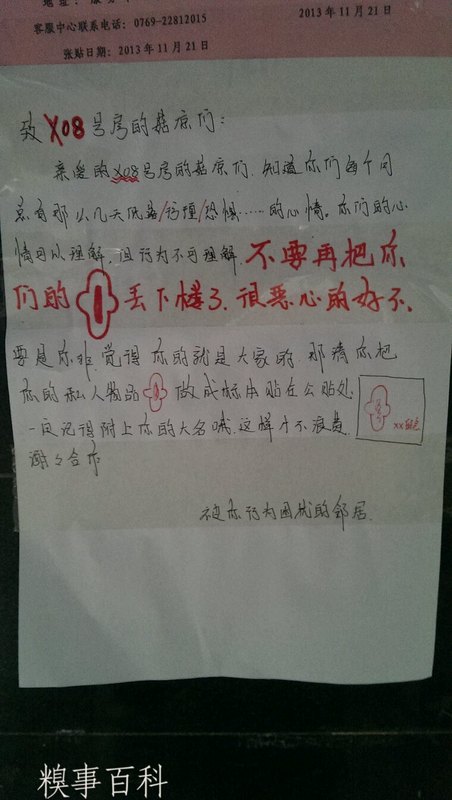 2013年11月21日
客服中心联系电话：0769-22812015
张贴日期：2013年11月21日
致X08号房的菇凉们：
亲爱的X08号房的菇凉们，知道你们每个月
总有那么几天低落/行理/恐惧……的心情。你们的心
情可以理解，但行为不可理解．不要再把你
们的 丢下楼了．很恶心的好不．
要是你非觉得你的就是大家的，那请你把
你的私人物品 做成标本贴在公贴处
一定记得附上你的大名哦．这样才不浪费．
谢々合作
被你行为困扰的邻居．
糗事百科